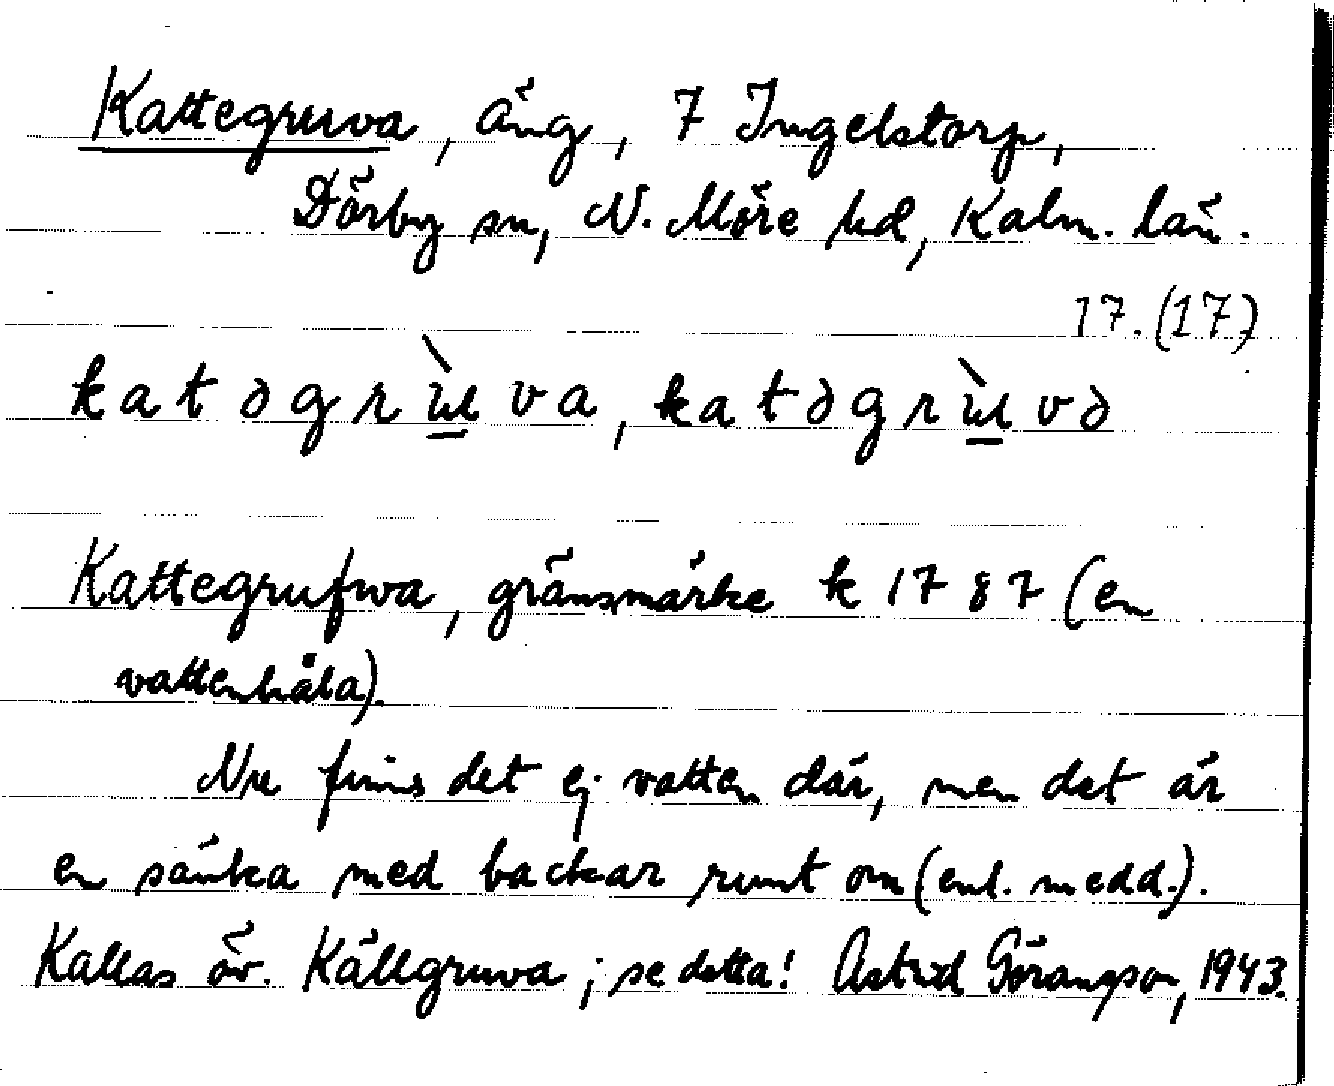 Kattegruva, äng, 7 Ingelstorp,
Dörby sn, N. Möre hd, Kalm. län.
17. (17)
katəgrùva, katəgrùvə
Kattegrufwa, gränsmärke k 1787 (en
vattenhåla).
Nu finns det ej vatten där, men det är
en sänka med backar runt om (enl. medd.).
Kallas äv. Källgruva; se detta! Astrid Göranson, 1943.